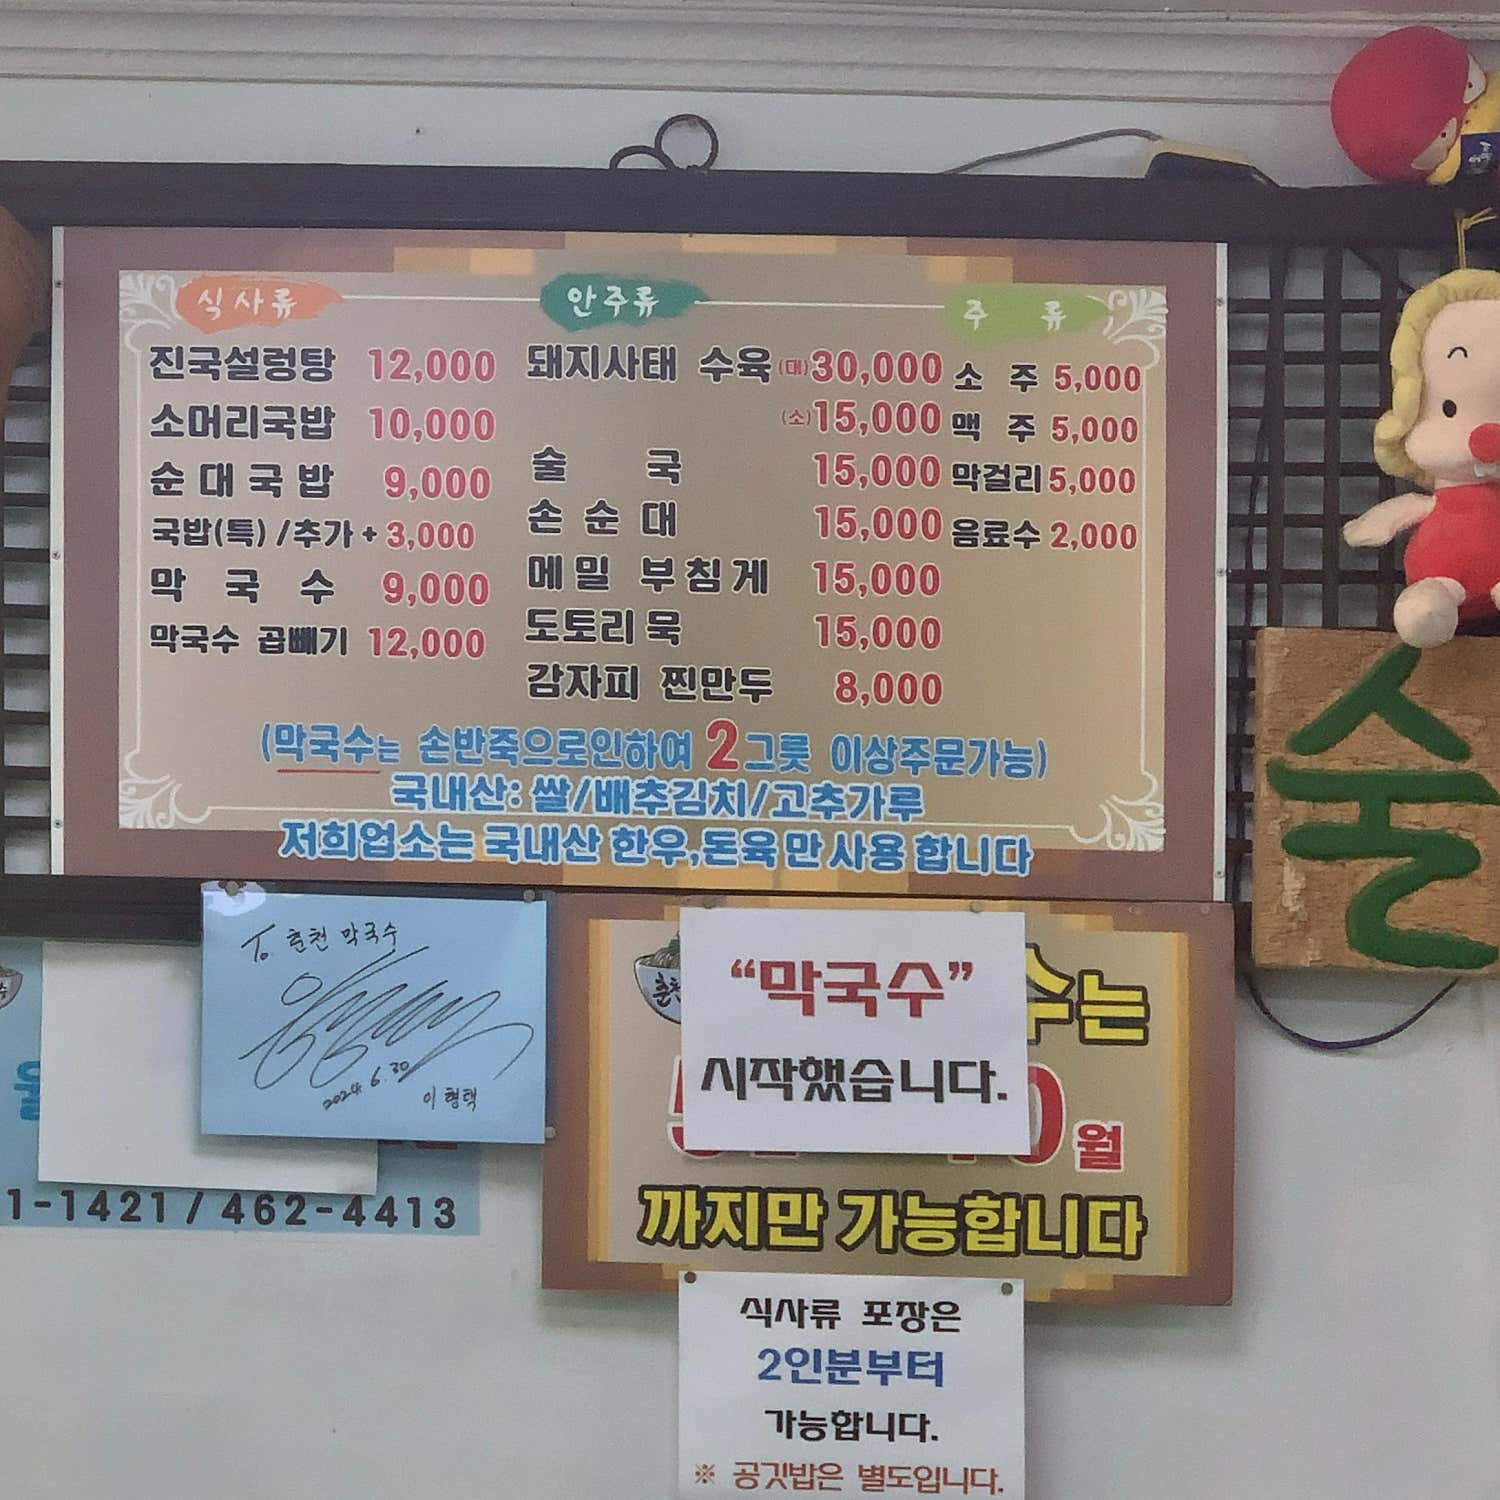 식사류
진국설렁탕 12,000
소머리국밥 10,000
순대국밥 9,000
국밥(특)/추가+3,000
막국수 9,000
막국수 곱빼기 12,000
안주류
돼지사태 수육(대)30,000
(소)15,000
술국 15,000
손순대 15,000
메밀 부침게 15,000
도토리묵 15,000
감자피 찐만두 8,000
주류
소주 5,000
맥주 5,000
막걸리 5,000
음료수 2,000
(막국수는 손반죽으로인하여 2그릇 이상주문가능)
국내산: 쌀/배추김치/고추가루
저희업소는 국내산 한우,돈육만 사용 합니다
술
To. 춘천 막국수
2024 6.30
이형택
1-1421 / 462-4413
"막국수"
시작했습니다.
수는
월
까지만 가능합니다
식사류 포장은
2인분부터
가능합니다.
※ 공깃밥은 별도입니다.